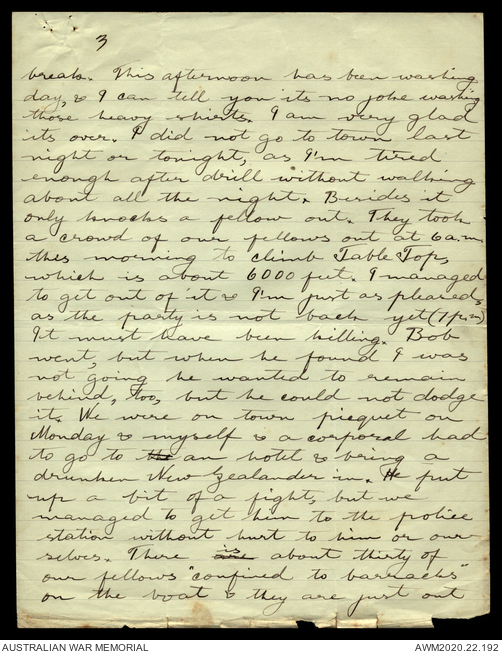 3
break. This afternoon has been washing
day, & I can tell you its no joke washing
those heavy shirts. I am very glad
its over. I did not go to town last
night or tonight, as I'm tired
enough after drill without walking
about all the night. Besides it
only knocks a fellow out. They took
a crowd of our fellows out at 6 a.m.
this morning to climb Table Top,
which is about 6000 feet. I managed
to get out of it & I'm just as pleased,
as the party is not back yet (7 p.m)
It must have been killing. Bob
went, but when he found I was
not going he wanted to remain
behind, too, but he could not dodge
it. We were on town picquet on
Monday & myself & a corporal had
to go to the an hotel & bring a
drunken New Zealander in. He put
up a bit of a fight, but we
managed to get him to the police
station without hurt to him or our-
selves. There is about thirty of
our fellows "confined to barracks"
on the boat & they are just out
AUSTRALIAN WAR MEMORIAL
AWM2020.22.192